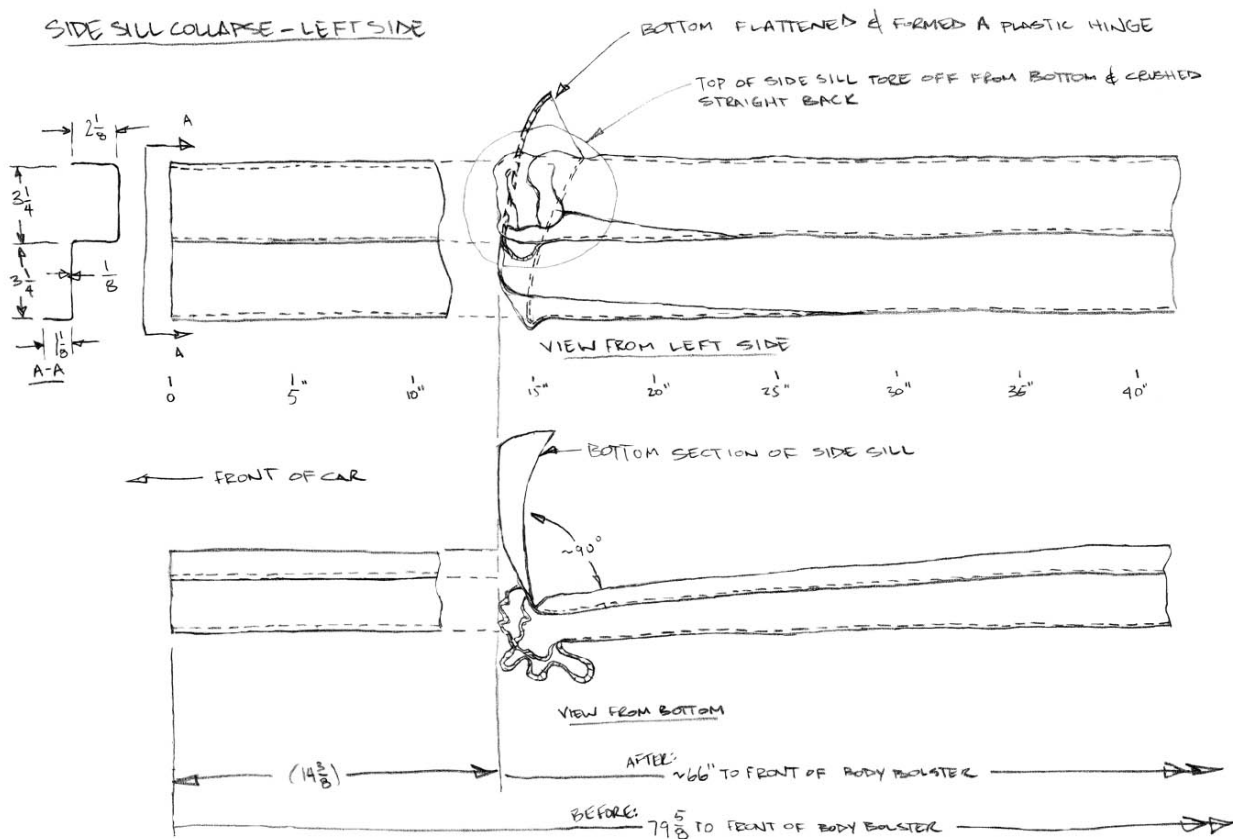 SIDE SILL COLLAPSE - LEFT SIDE
BOTTOM FLATTENED & FORMED A PLASTIC HINGE
TOP OF SIDE SILL TORE OFF FROM BOTTOM & CRUSHED
STRAIGHT BACK
2 1/8
A
3 1/4
3 1/4
1/8
1 1/8
A-A
A
VIEW FROM LEFT SIDE
0 5" 10" 15" 20" 25" 30" 35" 40"
BOTTOM SECTION OF SIDE SILL
FRONT OF CAR
~90°
VIEW FROM BOTTOM
(14 3/8)
AFTER:
~66" TO FRONT OF BODY BOLSTER
BEFORE:
79 5/8 TO FRONT OF BODY BOLSTER